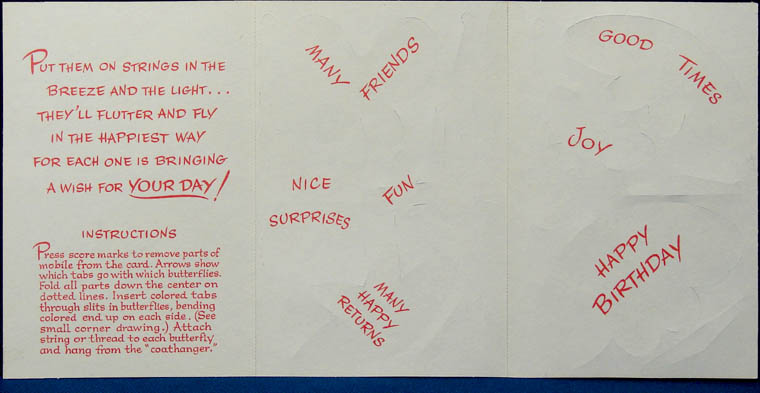 PUT THEM ON STRINGS IN THE
BREEZE AND THE LIGHT...
THEY'LL FLUTTER AND FLY
IN THE HAPPIEST WAY
FOR EACH ONE IS BRINGING
A WISH FOR YOUR DAY!
INSTRUCTIONS
Press score marks to remove parts of
mobile from the card. Arrows show
which tabs go with which butterflies.
Fold all parts down the center on
dotted lines. Insert colored tabs
through slits in butterflies, bending
colored end up on each side. (See
small corner drawing.) Attach
string or thread to each butterfly
and hang from the "coathanger."
MANY
FRIENDS
NICE
SURPRISES
FUN
MANY
HAPPY
RETURNS
GOOD
TIMES
JOY
HAPPY
BIRTHDAY